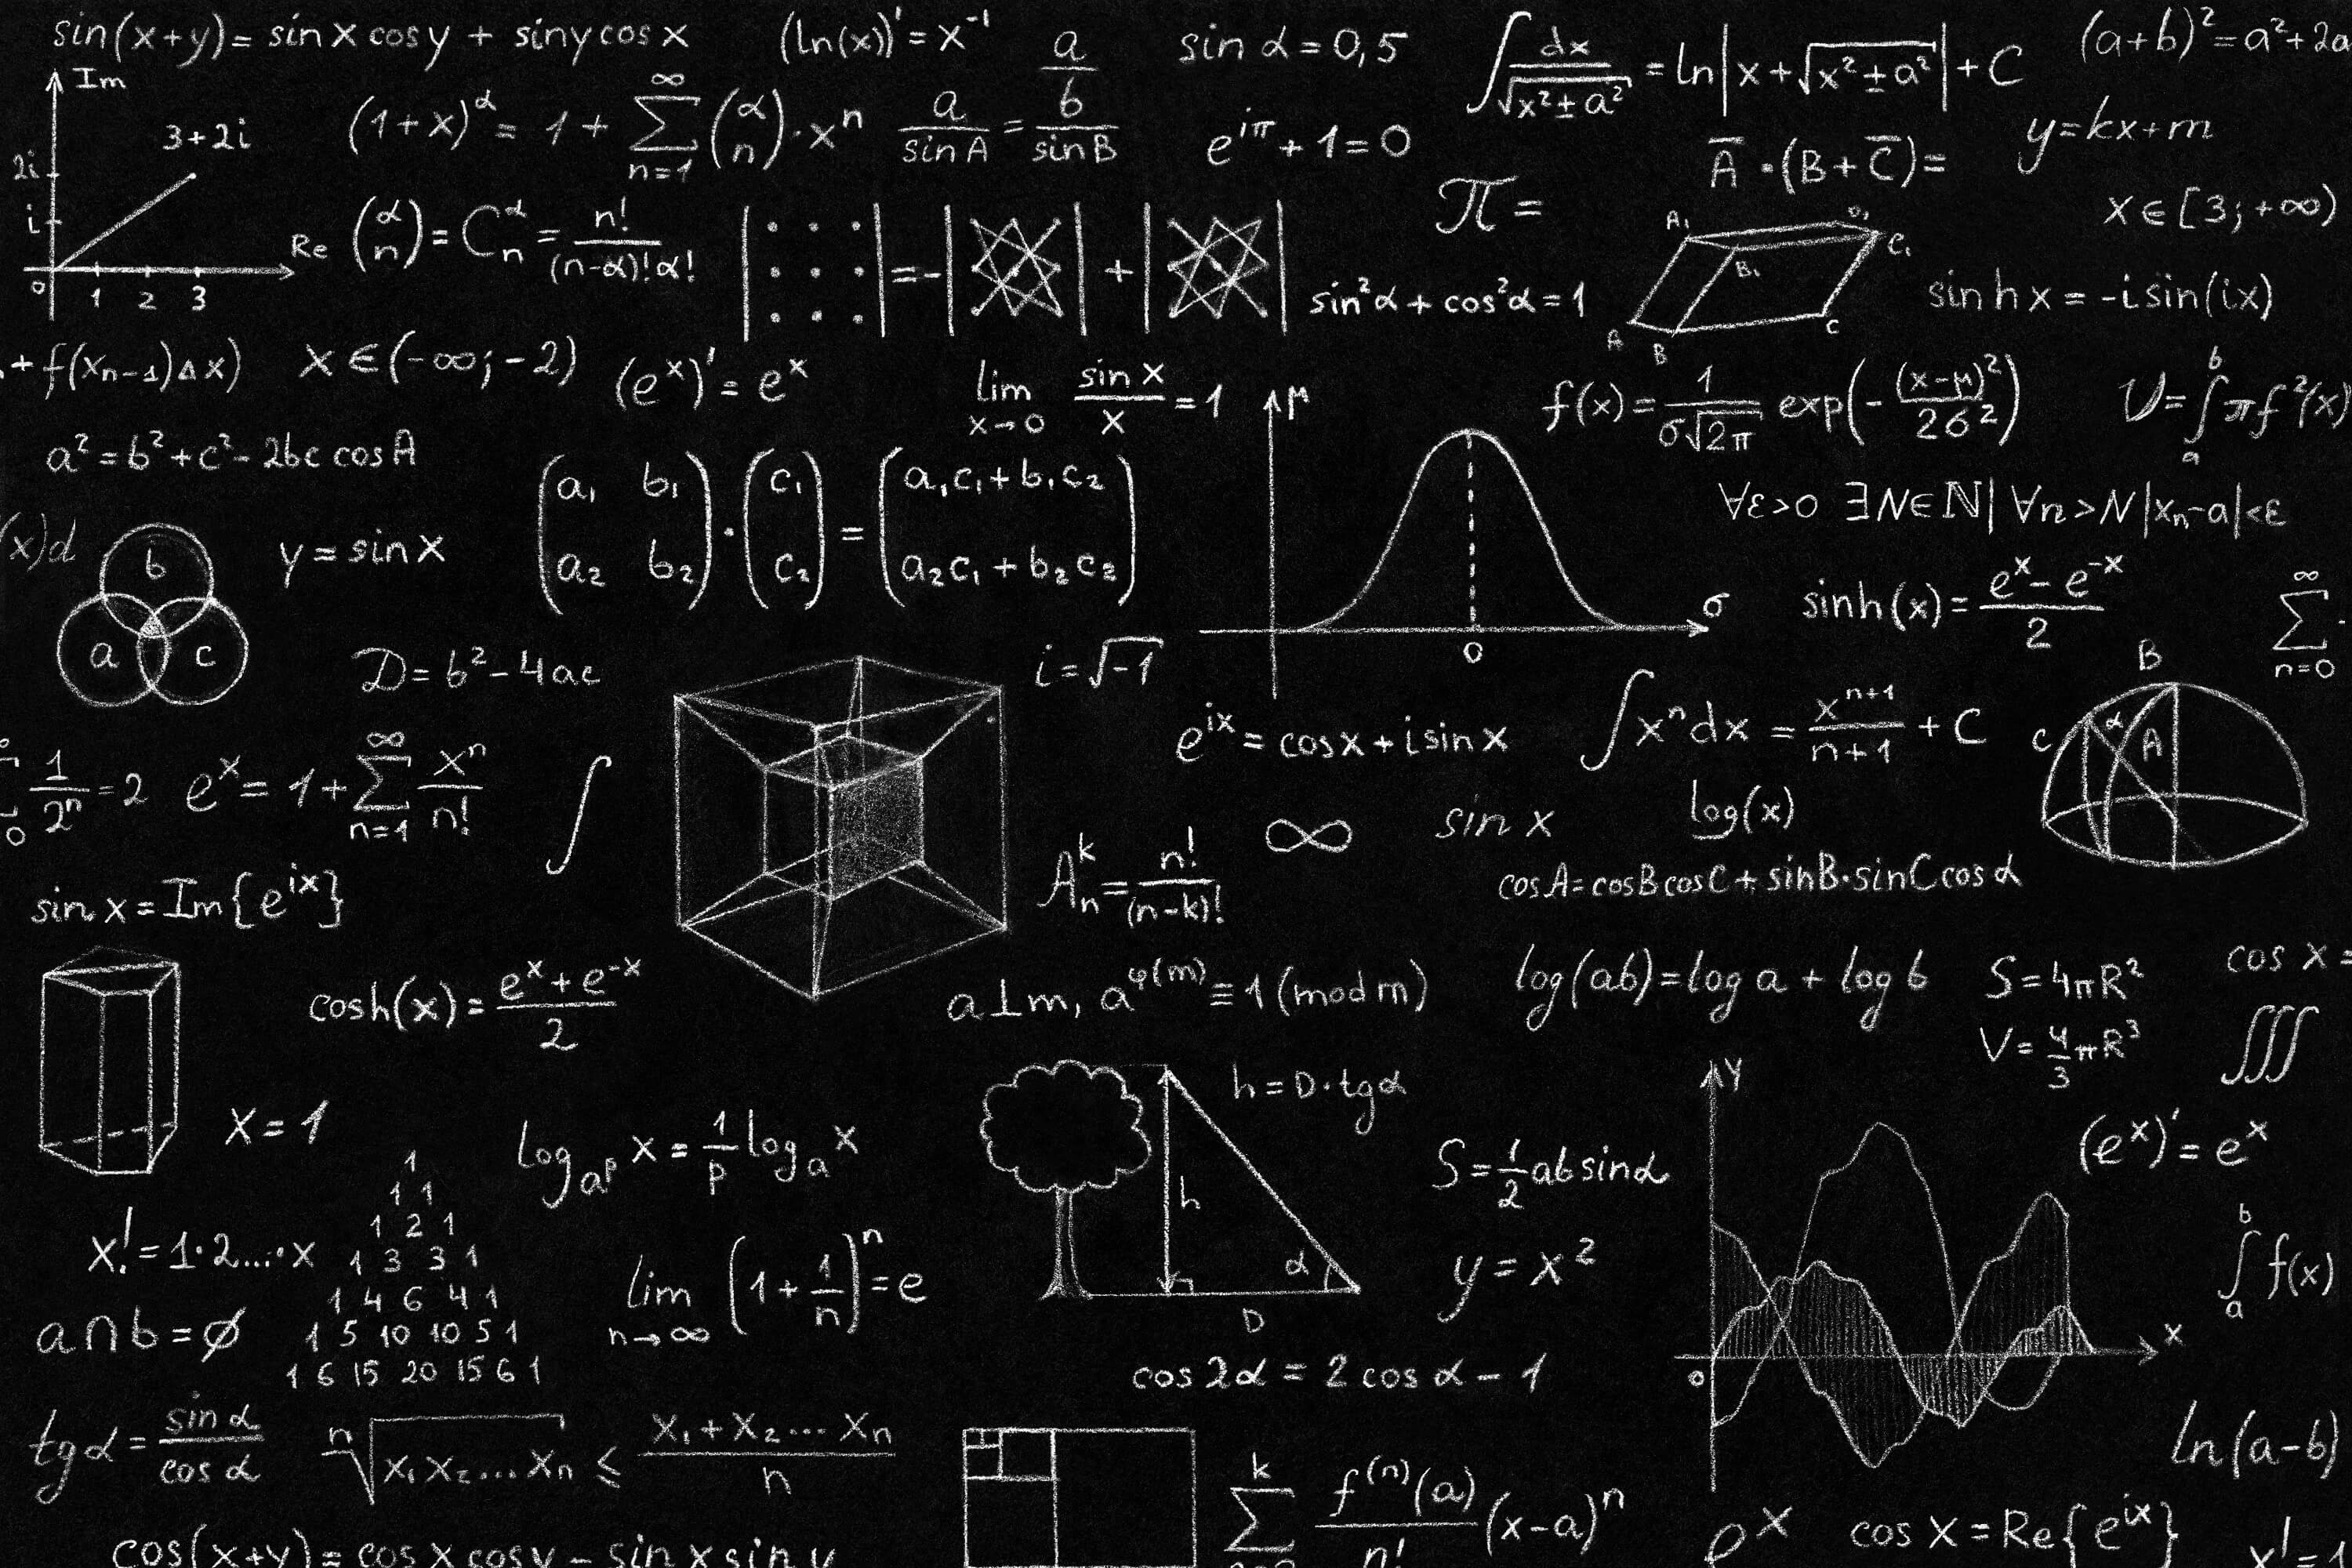 sin(x+y) = sin x cos y + sin y cos x
(ln(x))' = x⁻¹
a/sin A = (a/b)/sin B
sin α = 0,5
∫ dx/√(x² ± a²) = ln|x + √(x² ± a²)| + C
(a+b)² = a² + 2a
Im
3+2i
2i
i
0 1 2 3
Re
(1+x)^α = 1 + ∑_{n=1}^{∞} (α n) · xⁿ
e^{iπ} + 1 = 0
A̅ · (B + C̅) =
y = kx + m
(α n) = C_n^α = n!/((n-α)!α!)
π =
x ∈ [3; +∞)
= - | | + | |
sin²α + cos²α = 1
A₁ D₁ B₁ C₁ A B C
sin h x = -i sin(ix)
+ f(x_{n-1})Δx)
x ∈ (-∞; -2)
(eˣ)' = eˣ
lim_{x→0} sin x/x = 1
μ
σ
0
f(x) = 1/(σ√2π) exp(-(x-μ)²/2σ²)
V = ∫_a^b π f²(x)
a² = b² + c² - 2bc cos A
(a₁ b₁ a₂ b₂) · (c₁ c₂) = (a₁c₁ + b₁c₂ a₂c₁ + b₂c₂)
∀ε>0 ∃N∈ℕ| ∀n>N |xₙ-a|<ε
(x)d
b
a c
y = sin x
sinh(x) = (eˣ - e⁻ˣ)/2
∑_{n=0}^{∞}
D = b² - 4ac
i = √-1
e^{ix} = cos x + i sin x
∫ xⁿ dx = x^{n+1}/(n+1) + C
B
C α A
1/2ⁿ = 2
0
eˣ = 1 + ∑_{n=1}^{∞} xⁿ/n!
∫
∞
sin x
log(x)
A_n^k = n!/(n-k)!
cos A = cos B cos C + sin B · sin C cos α
sin x = Im{e^{ix}}
cosh(x) = (eˣ + e⁻ˣ)/2
a⊥m, a^{φ(m)} ≡ 1 (mod m)
log(ab) = log a + log b
S = 4πR²
V = 4/3 πR³
cos x =
∭
x = 1
log_{a^p} x = 1/p log_a x
h
α
D
h = D · tg α
S = 1/2 ab sin α
y
x
0
(eˣ)' = eˣ
1
1 1
1 2 1
1 3 3 1
1 4 6 4 1
1 5 10 10 5 1
1 6 15 20 15 6 1
x! = 1·2...·x
lim_{n→∞} (1 + 1/n)ⁿ = e
y = x²
∫_a^b f(x)
a ∩ b = ∅
cos 2α = 2 cos α - 1
tg α = sin α/cos α
ⁿ√(x₁ x₂... xₙ) ≤ (x₁ + x₂... xₙ)/n
∑^k f⁽ⁿ⁾(a)/n! (x-a)ⁿ
ln(a-b)
cos(x+y) = cos x cos y - sin x sin y
eˣ
cos x = Re{e^{ix}}
x! = 1